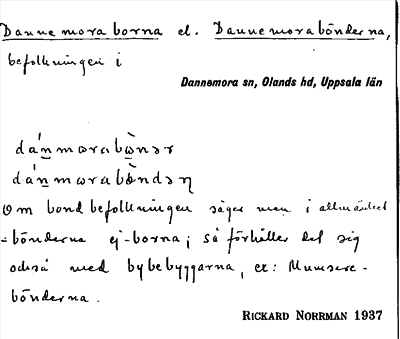 Dannemoraborna el. Dannemorabönderna,
befolkningen i
Dannemora sn, Olands hd, Uppsala län
dánmωrabὼnər
dánmωrabǿndəη
Om bondbefolkningen säger man i allmänhet
-bönderna ej -borna; så förhåller det sig
också med bybebyggarna, ex: Mumsere-
bönderna.
RICKARD NORRMAN 1937